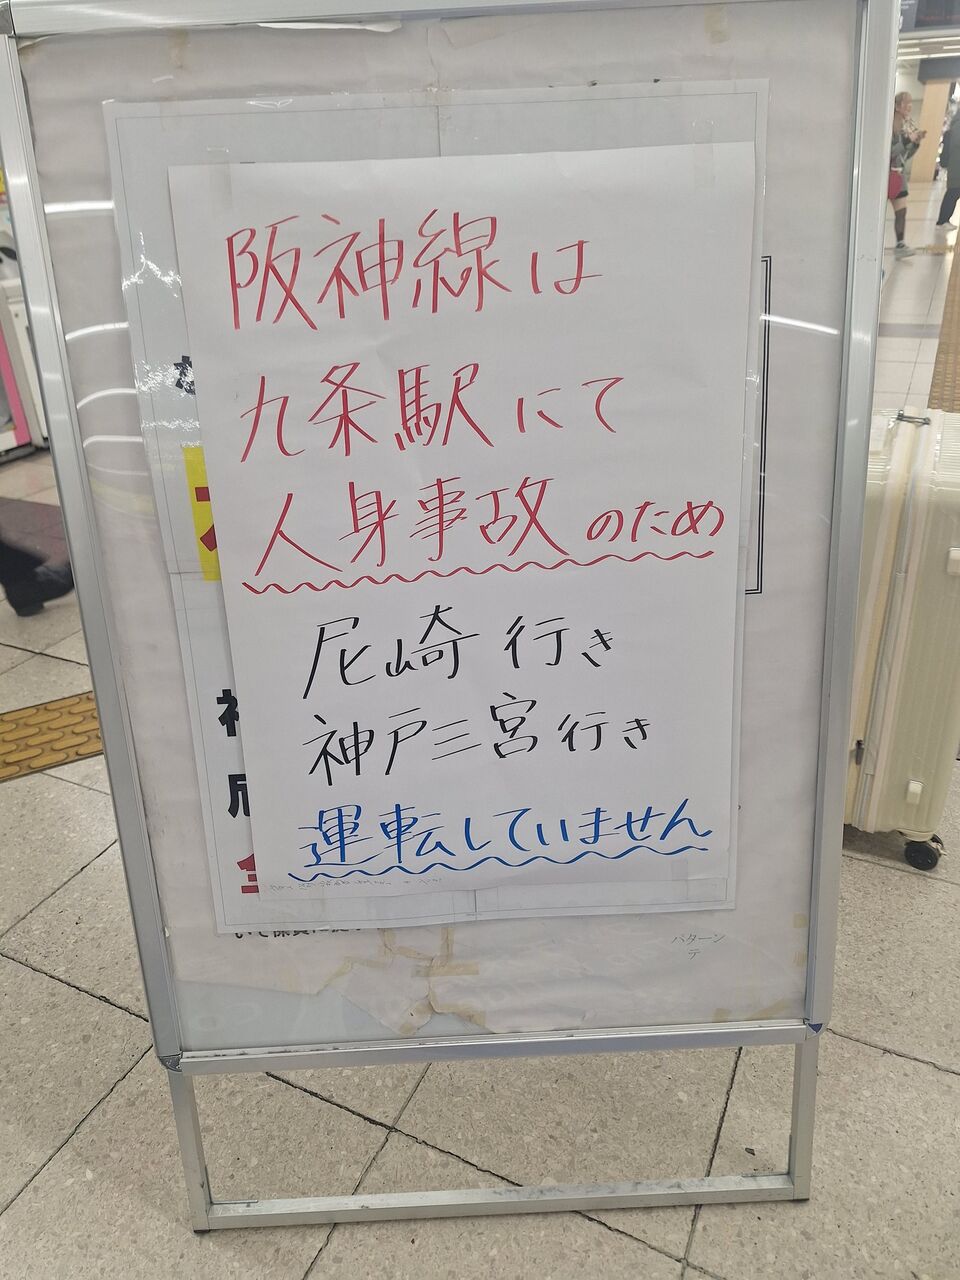 阪神線は
九条駅にて
人身事故のため
尼崎 行き
神戸三宮行き
運転していません
パターン
テ